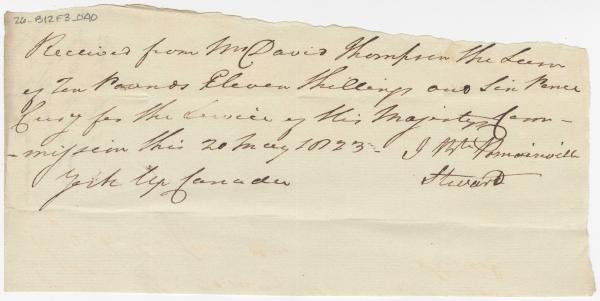 26-B12F3_0A0
Received from Mr David Thompson the Sum
of Ten Pounds Eleven Shillings and Six Pence
Curcy for the Service of His Majestys Com-
-mission this 20 May 1823 - J Bt Pomainville
York Up Canada Steward